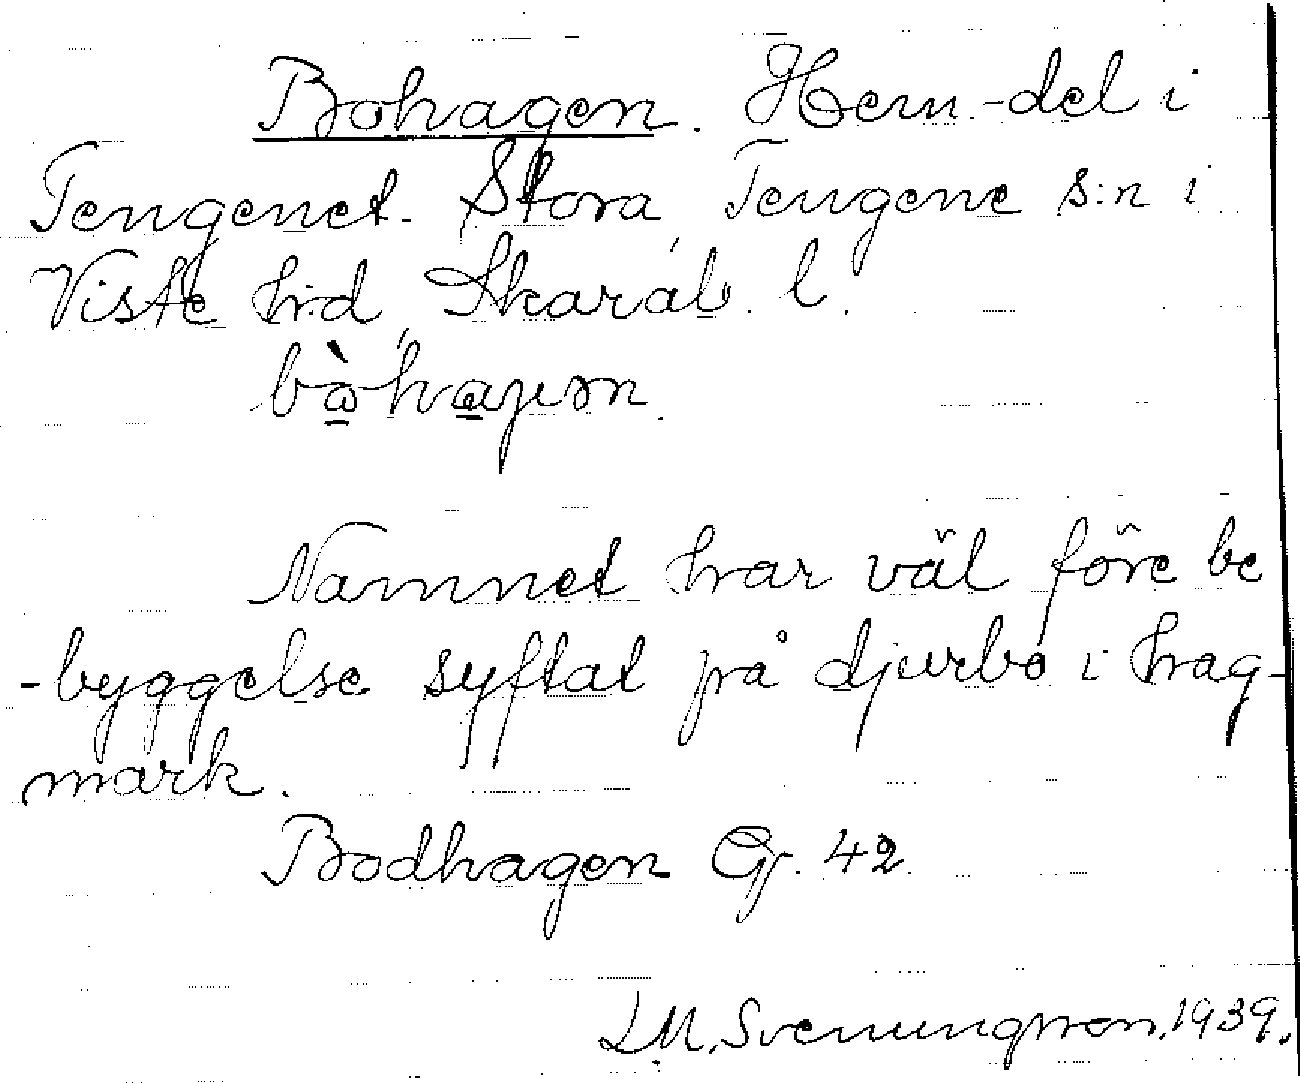 Bohagen. Hem.-del i
Tengenet. Stora, Tengene s:n i
Viste h:d, Skarab. l.
Namnet har väl före be
-byggelse syftat på djurbo i hag-
mark.
Bodhagen Gr. 42.
L.M. Svenungsson. 1939.